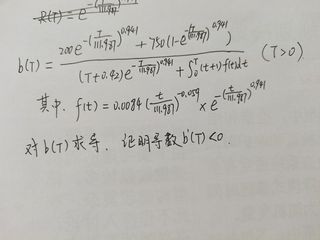 R(T) = e^{-(T/111.937)^{0.941}}
b(T) = \frac{200e^{-(T/111.937)^{0.941}} + 750(1-e^{-(T/111.937)^{0.941}})}{(T+0.92)e^{-(T/111.937)^{0.941}} + \int_0^T (t+1)f(t)dt} (T>0)
其中, f(t) = 0.0084(t/111.937)^{-0.059} × e^{-(t/111.937)^{0.941}}
对 b(T) 求导, 证明导数 b'(T)<0.